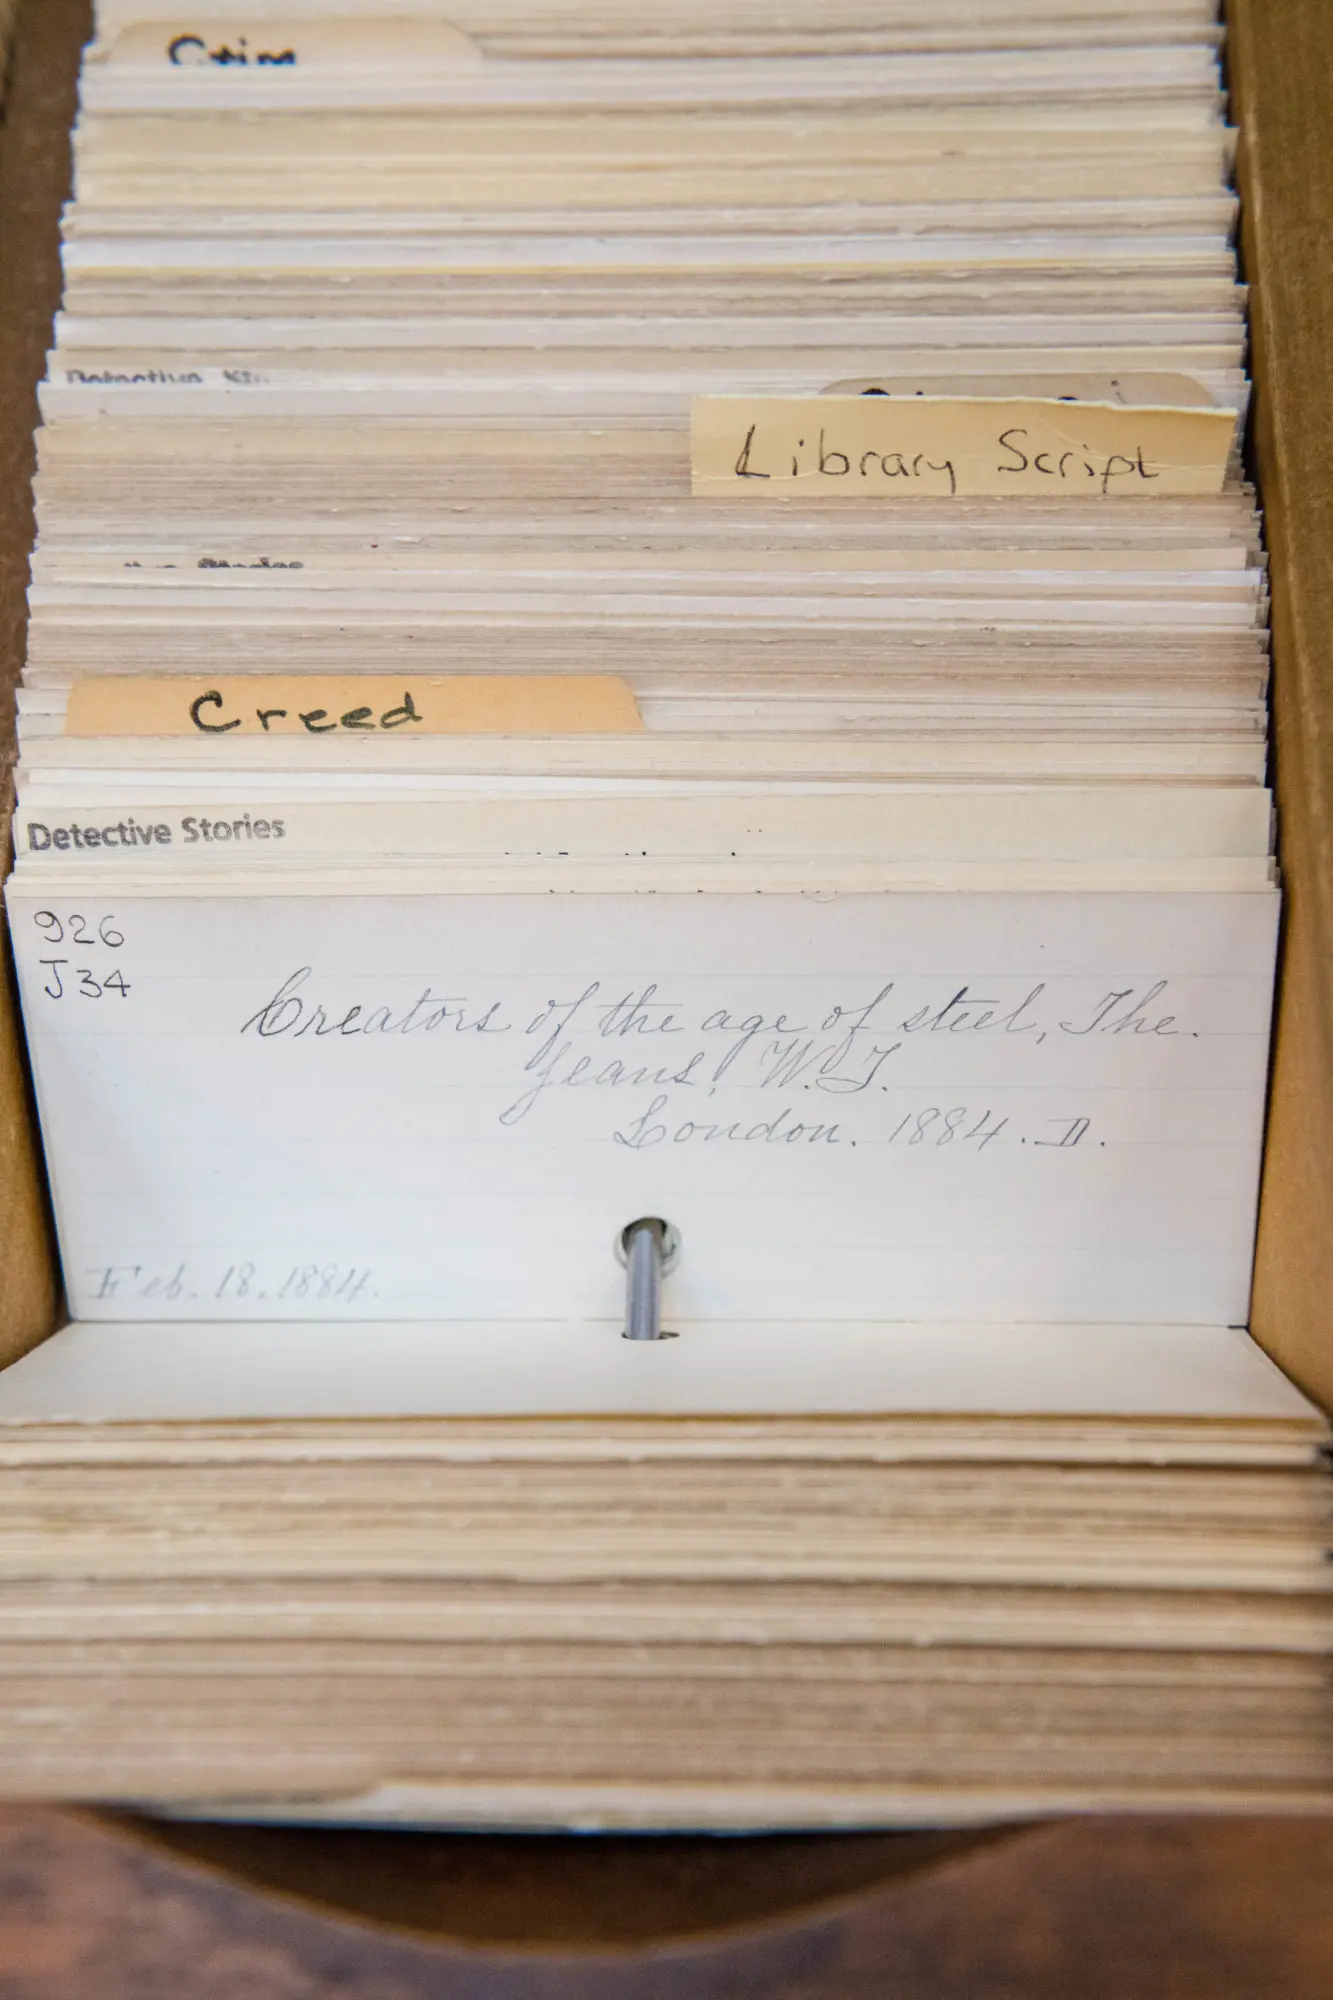 Crim
Library Script
Creed
Detective Stories
926
J34
Creators of the age of steel, The.
Jeans, W. T.
London. 1884. D.
Feb. 18. 1884.